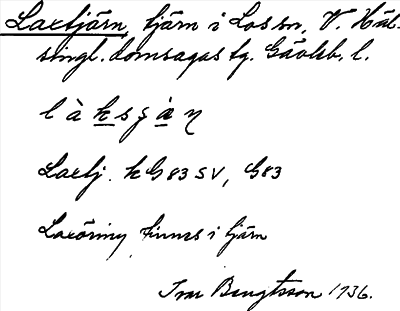 Laxtjärn, tjärn i Los sn, V. Häl-
singl. domsagas tg. Gävleb. l.
l à k s ʂ à ɳ
Laxtj. kG83 SV, G83
Laxöring finnes i tjärn
Ivar Bengtsson 1936.